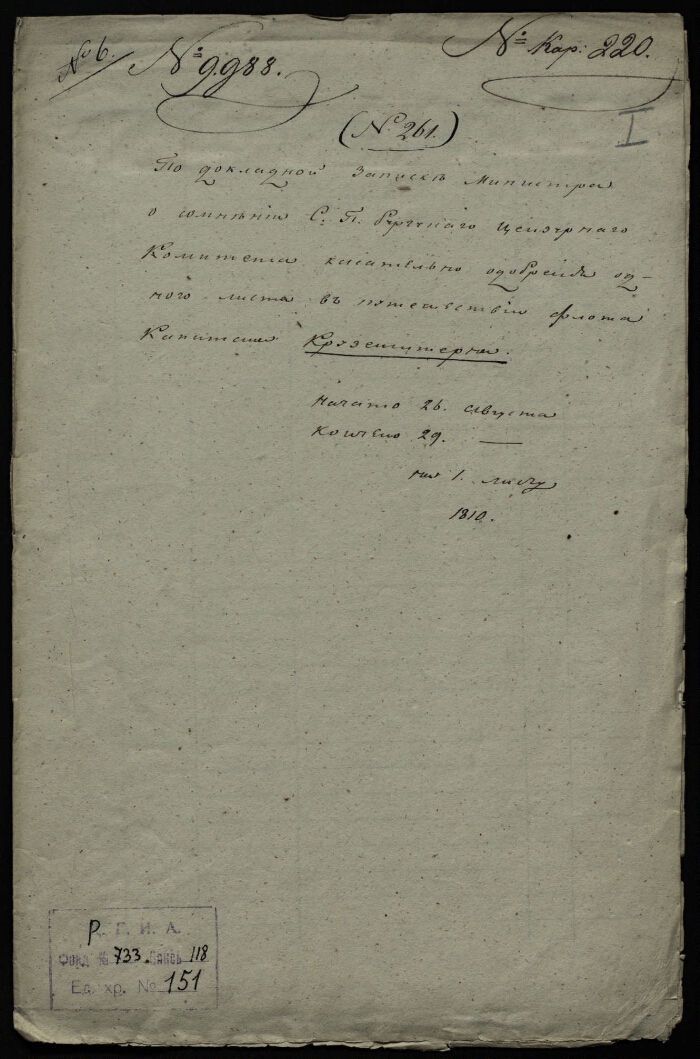 № 6.
№ 9988.
№ Кар: 220.
(№ 261.)
I
По докладной Запискѣ Министра
о сомнѣніи С. П. бургскаго Цензурнаго
Комитета касательно одобренія од-
ного листа въ путешествіи флота
Капитана Крузенштерна.
Начато 26. августа
Кончено 29. —
на 1. листу
1810.
Р. Г. И. А.
Фонд № 733. Опись 118
Ед. хр. № 151